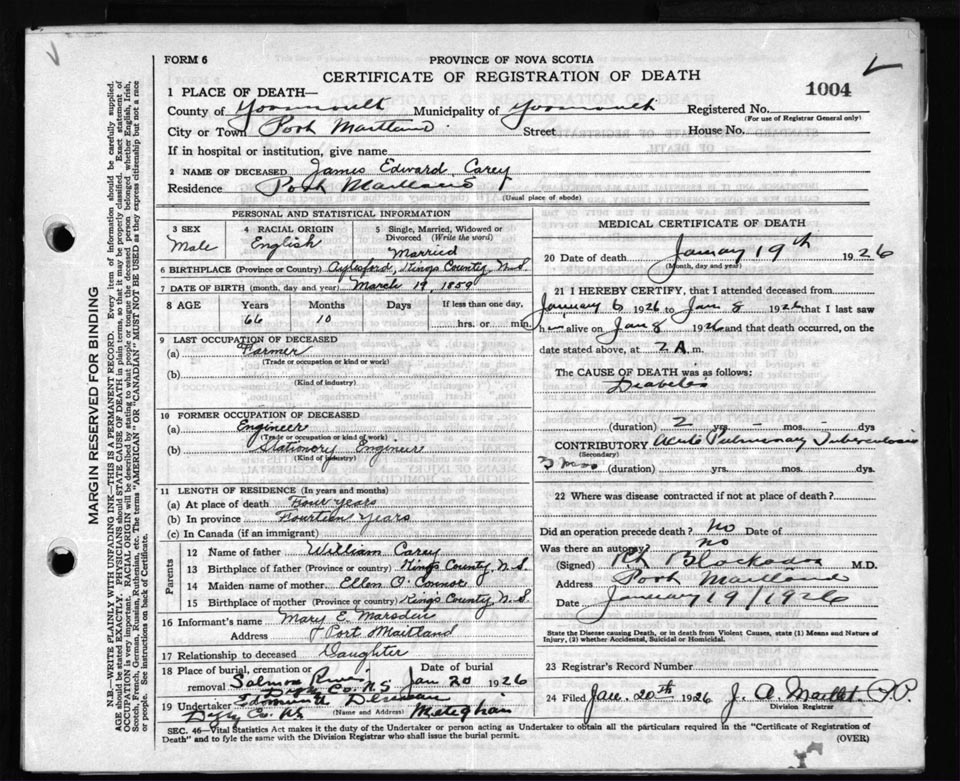 FORM 6
PROVINCE OF NOVA SCOTIA
CERTIFICATE OF REGISTRATION OF DEATH
1004
1 PLACE OF DEATH—
County of Yarmouth Municipality of Yarmouth Registered No.
(For use of Registrar General only)
City or Town Port Maitland Street House No.
If in hospital or institution, give name
2 NAME OF DECEASED James Edward Carey
Residence Port Maitland
(Usual place of abode)
PERSONAL AND STATISTICAL INFORMATION
3 SEX
Male
4 RACIAL ORIGIN
English
5 Single, Married, Widowed or
Divorced (Write the word)
Married
6 BIRTHPLACE (Province or Country) Aylesford, Kings County, N.S.
7 DATE OF BIRTH (month, day and year) March 19, 1859
8 AGE Years Months Days If less than one day,
66 10 hrs. or min.
9 LAST OCCUPATION OF DECEASED
(a) Farmer
(Trade or occupation or kind of work)
(b)
(Kind of industry)
10 FORMER OCCUPATION OF DECEASED
(a) Engineer
(Trade or occupation or kind of work)
(b) Stationary Engineer
(Kind of industry)
11 LENGTH OF RESIDENCE (In years and months)
(a) At place of death Four years
(b) In province Fourteen years
(c) In Canada (if an immigrant)
Parents
12 Name of father William Carey
13 Birthplace of father (Province or country) Kings County, N.S.
14 Maiden name of mother Ellen O'Connor
15 Birthplace of mother (Province or Country) Kings County, N.S.
16 Informant's name Mary E.
Address Port Maitland
17 Relationship to deceased Daughter
18 Place of burial, cremation or
removal Salmon River
Digby Co. N.S.
Date of burial
Jan 20 1926
19 Undertaker Edmund
Digby Co. N.S. (Name and Address) Meteghan
MEDICAL CERTIFICATE OF DEATH
20 Date of death January 19th 1926
(Month, day and year)
21 I HEREBY CERTIFY, that I attended deceased from
January 6 1926 to Jan 8 1926 that I last saw
him alive on Jan 8 1926 and that death occurred, on the
date stated above, at 2 A. m.
The CAUSE OF DEATH was as follows:
Diabetes
(duration) 2 yrs. - mos. - dys
CONTRIBUTORY Acute Pulmonary Tuberculosis
(Secondary)
3 mos (duration) yrs. mos. dys.
22 Where was disease contracted if not at place of death?
Did an operation precede death? No Date of
Was there an autopsy? No
(Signed) M.D.
Address Port Maitland
Date January 19/1926
State the Disease causing Death, or in death from Violent Causes, state (1) Means and Nature of
Injury, (2) whether Accidental, Suicidal or Homicidal.
23 Registrar's Record Number
24 Filed Jan. 20th 1926 J. A. Maillet
Division Registrar
SEC. 46—Vital Statistics Act makes it the duty of the Undertaker or person acting as Undertaker to obtain all the particulars required in the "Certificate of Registration of
Death" and to fyle the same with the Division Registrar who shall issue the burial permit.
(OVER)
MARGIN RESERVED FOR BINDING
N.B.—WRITE PLAINLY WITH UNFADING INK—THIS IS A PERMANENT RECORD. Every item of information should be carefully supplied.
AGE should be stated EXACTLY. PHYSICIANS should STATE CAUSE OF DEATH in plain terms, so that it may be properly classified. Exact statement of
OCCUPATION is very important. RACIAL ORIGIN will be described by stating to what people or tongue the deceased person belonged whether English, Irish,
Scotch, French, German, Russian, Ruthenian, etc. The terms "AMERICAN" OR "CANADIAN" MUST NOT BE USED as they express citizenship but not a race
or people. See instructions on back of Certificate.